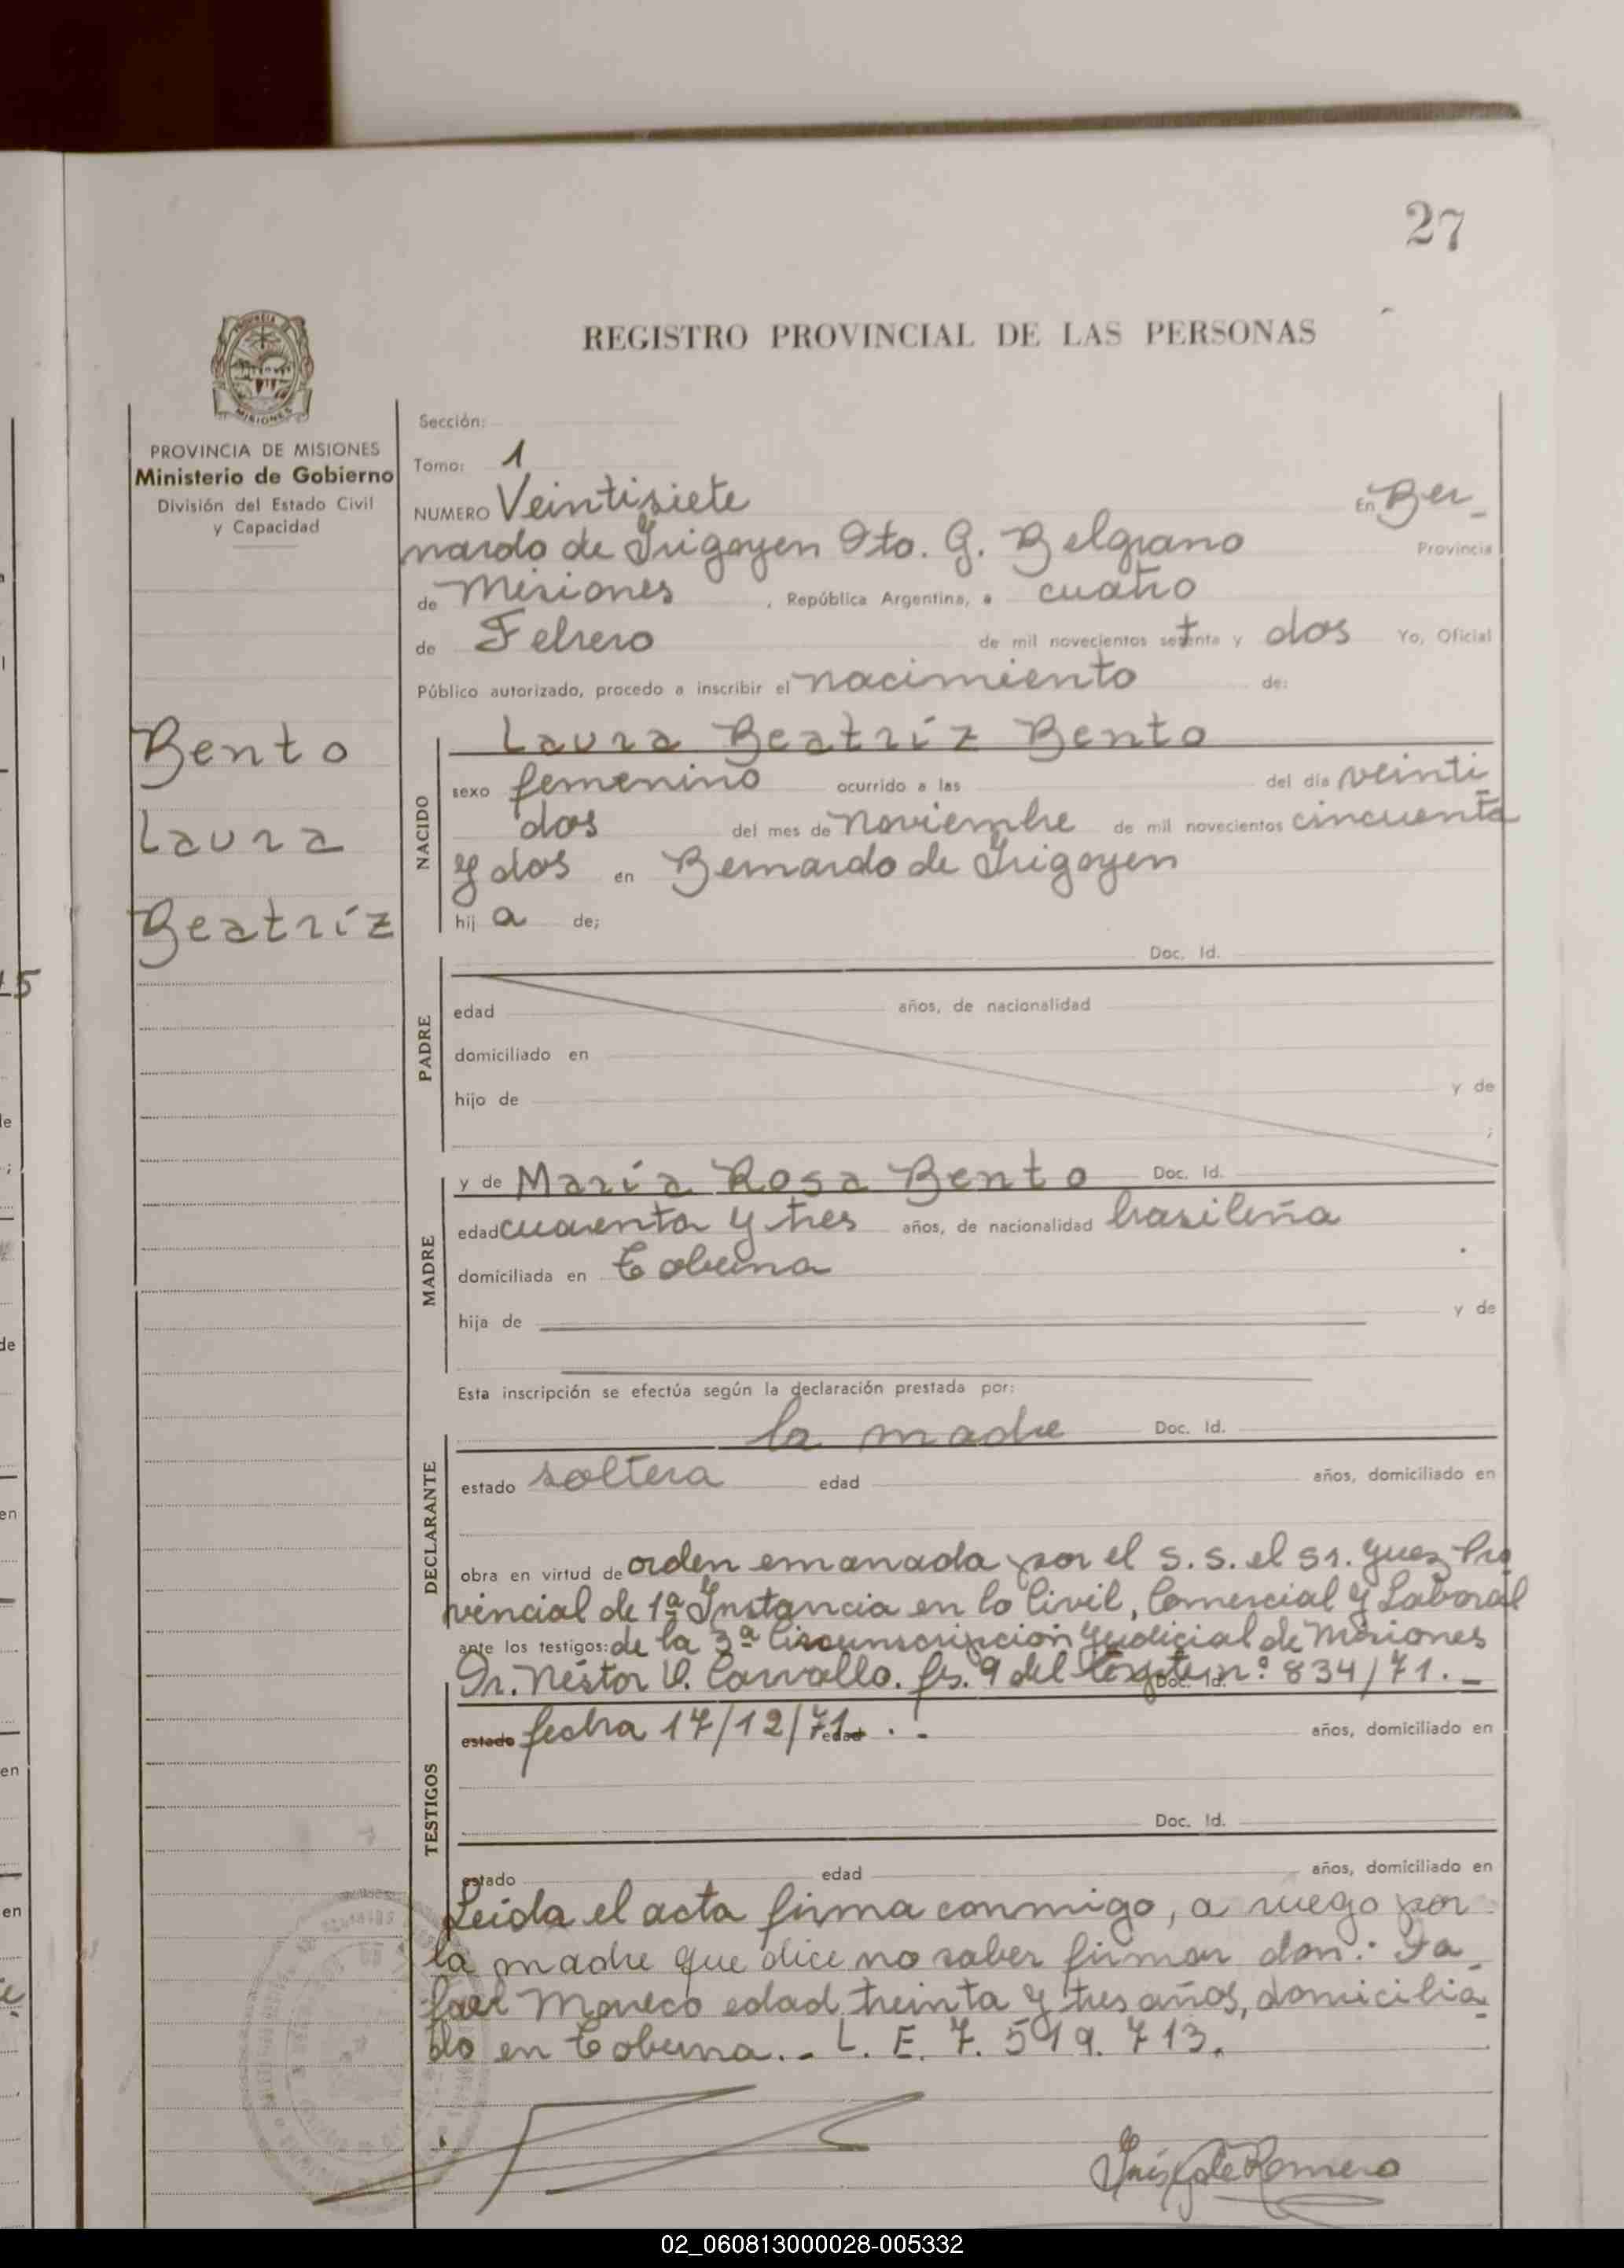 27
REGISTRO PROVINCIAL DE LAS PERSONAS
PROVINCIA DE MISIONES
Ministerio de Gobierno
División del Estado Civil
y Capacidad
Bento
Laura
Beatríz
Sección:
Tomo: 1
NUMERO Veintisiete En Ber_
nardo de Irigoyen Dto. G. Belgrano Provincia
de Misiones , República Argentina, a cuatro
de Febrero de mil novecientos setenta y dos Yo, Oficial
Público autorizado, procedo a inscribir el nacimiento de:
NACIDO
Laura Beatríz Bento
sexo femenino ocurrido a las del día veinti_
dos del mes de noviembre de mil novecientos cincuenta
y dos en Bernardo de Irigoyen
hij a de;
PADRE
Doc. Id.
edad años, de nacionalidad
domiciliado en
hijo de y de
;
MADRE
y de María Rosa Bento Doc. Id.
edad cuarenta y tres años, de nacionalidad brasileña
domiciliada en Cobuna
hija de y de
Esta inscripción se efectúa según la declaración prestada por:
DECLARANTE
la madre Doc. Id.
estado soltera edad años, domiciliado en
obra en virtud de orden emanada por el S.S. el Sr. Juez Pro
vincial de 1ª Instancia en lo Civil, Comercial y Laboral
ante los testigos: de la 3ª Circunscripción Judicial de Misiones
Dr. Néstor Carvallo. fs. 9 del Expte. nº 834/71._
Doc. Id.
TESTIGOS
estado fecha 17/12/71 edad . - años, domiciliado en
Doc. Id.
estado edad años, domiciliado en
Leída el acta firma conmigo, a ruego por
la madre que dice no saber firmar don:
edad treinta y tres años, domicilia_
do en Cobuna.. L. E. 7. 519. 713.
de Romero
02_060813000028-005332